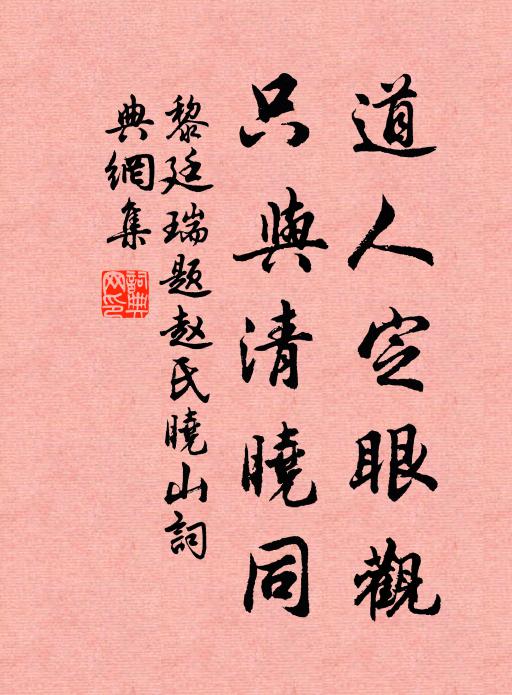 道人定眼觀
只與清曉同
黎廷瑞題赵氏曉山詞
典網集
詞典
网印